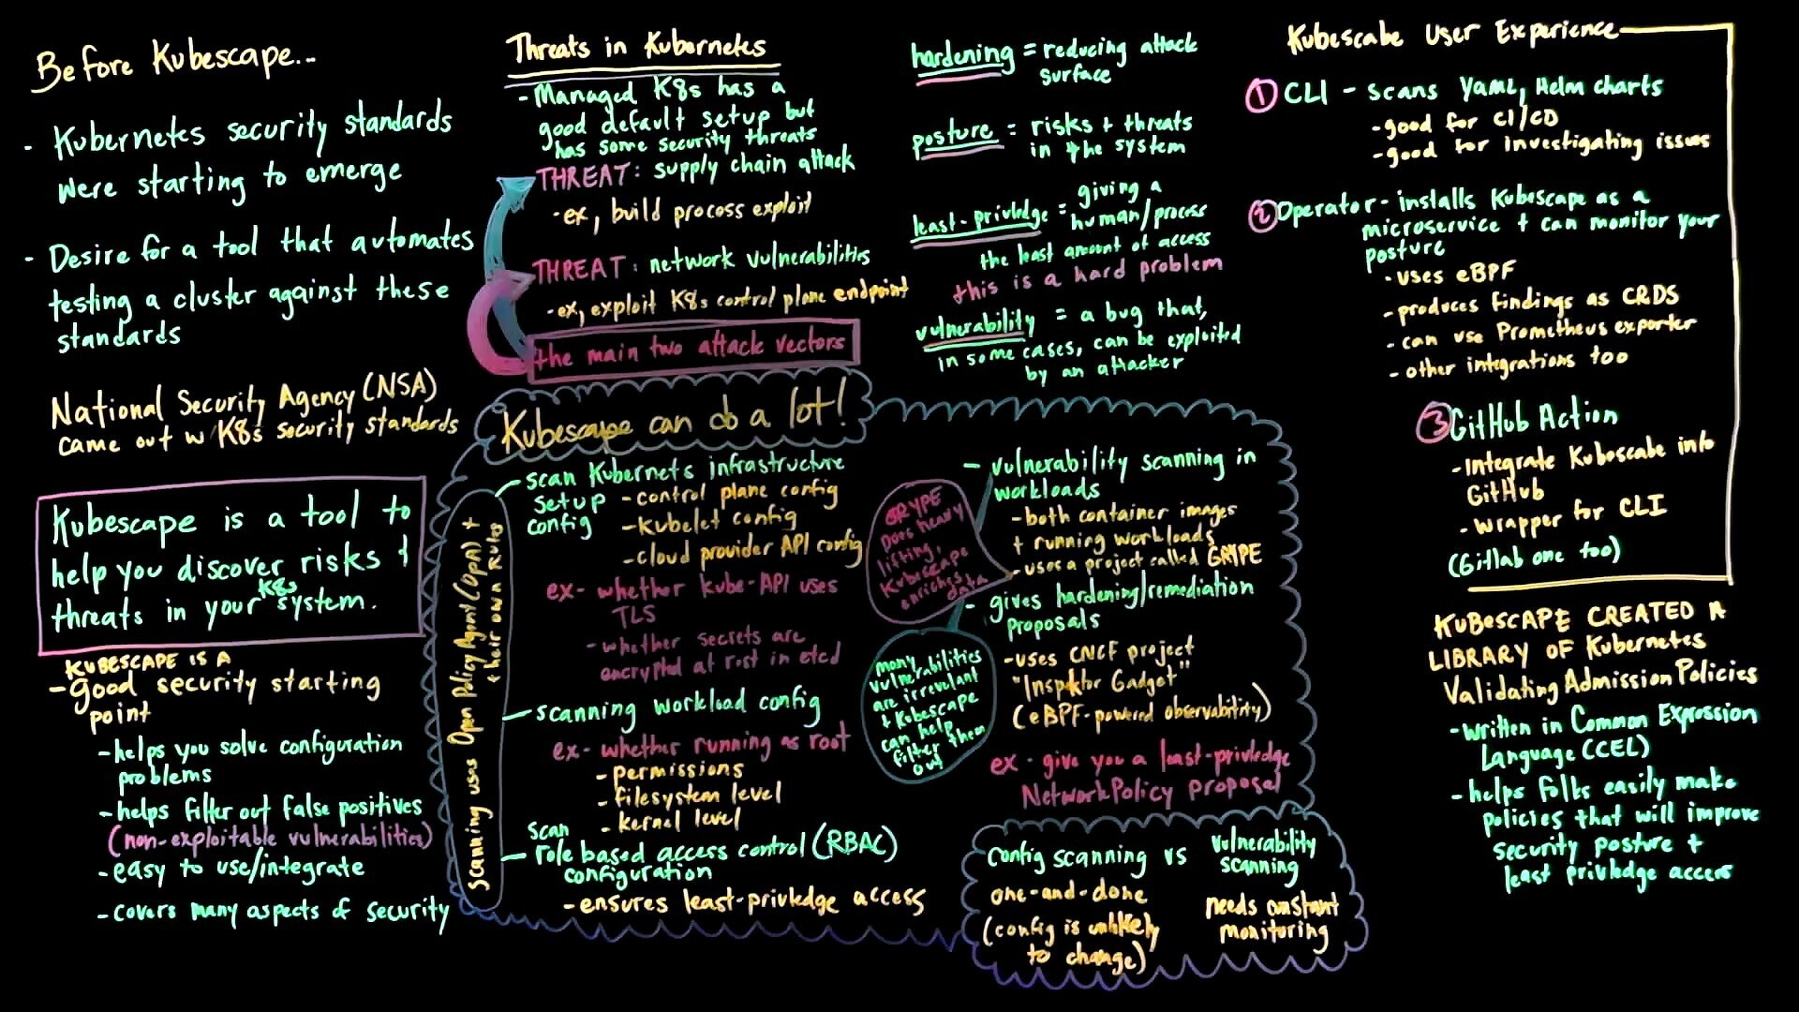 Before Kubescape...
- Kubernetes security standards
were starting to emerge
- Desire for a tool that automates
testing a cluster against these
standards
National Security Agency (NSA)
came out w K8s security standards
Kubescape is a tool to
help you discover risks +
threats in your K8s system.
KUBESCAPE IS A
- good security starting
point
- helps you solve configuration
problems
- helps filter out false positives
(non-exploitable vulnerabilities)
- easy to use/integrate
- covers many aspects of security
Threats in Kubernetes
- Managed K8s has a
good default setup but
has some security threats
THREAT: supply chain attack
- ex, build process exploit
THREAT: network vulnerabilities
- ex, exploit K8s control plane endpoint
the main two attack vectors
hardening = reducing attack
surface
posture = risks + threats
in the system
least-privledge = giving a
human/process
the least amount of access
this is a hard problem
vulnerability = a bug that,
in some cases, can be exploited
by an attacker
Kubescape can do a lot!
Scanning uses Open Policy Agent (OPA) +
their own rules
- scan Kubernets infrastructure
setup
config
- control plane config
- Kubelet config
- cloud provider API config
ex - whether kube-API uses
TLS
- whether secrets are
encrypted at rest in etcd
- scanning workload config
ex - whether running as root
- permissions
- filesystem level
- kernel level
scan
- role based access control (RBAC)
configuration
- ensures least-privledge access
- vulnerability scanning in
workloads
- both container images
+ running workloads
- uses a project called GRYPE
GRYPE
does heavy
lifting,
Kubescape
enriches
data
- gives hardening/remediation
proposals
- uses CNCF project
"Inspektor Gadget"
(eBPF-powered observability)
ex - give you a least-privledge
NetworkPolicy proposal
many
vulnerabilities
are irrevelant
+ Kubescape
can help
filter them
out
config scanning vs vulnerability
scanning
one-and-done
(config is unlikely
to change)
needs constant
monitoring
Kubescabe User Experience
1 CLI - scans Yaml, Helm charts
- good for CI/CD
- good for investigating issues
2 Operator - installs Kubescape as a
microservice + can monitor your
posture
- uses eBPF
- produces findings as CRDS
- can use Prometheus exporter
- other integrations too
3 GitHub Action
- integrate Kubescabe into
GitHub
- wrapper for CLI
(Gitlab one too)
KUBESCAPE CREATED A
LIBRARY OF Kubernetes
Validating Admission Policies
- written in Common Expression
Language (CEL)
- helps folks easily make
policies that will improve
security posture +
least privledge access